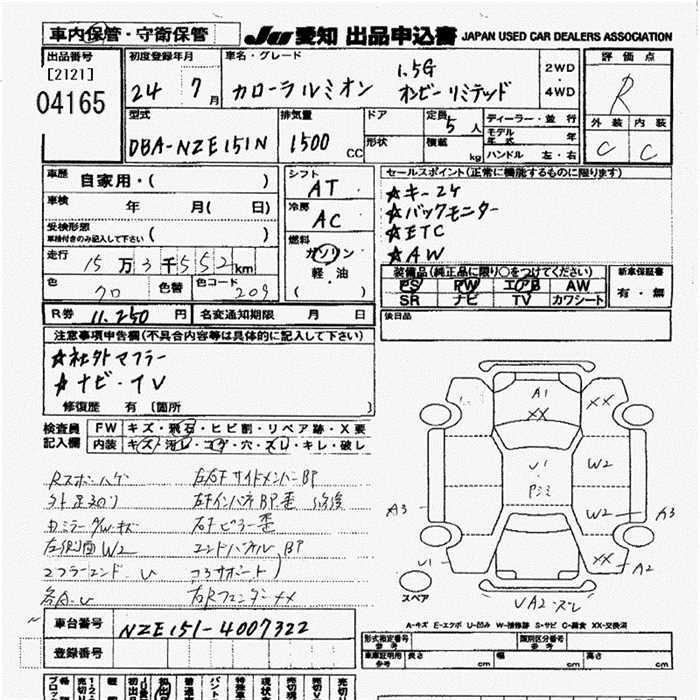 車内保管・守衛保管
JU 愛知 出品申込書 JAPAN USED CAR DEALERS ASSOCIATION
出品番号
[2121]
04165
初度登録年月
24 7月
車名・グレード
カローラルミオン 1.5G オンビーリミテッド
2WD
・
4WD
評価点
R
外装 内装
C C
型式
DBA-NZE151N
排気量
1500 CC
ドア
形状
定員 5人
積載 kg
ディーラー・並行
モデル年式 年
ハンドル 左・右
車歴 自家用・( )
車検 年 月( 日)
受検形態
車検付きのみ記入して下さい ( )
走行 15万3千552km
色 クロ 色替 色コード 209
シフト AT
冷房 AC
燃料
ガソリン
軽・油
( )
セールスポイント(正常に機能するものに限ります)
★キー2ケ
★バックモニター
★ETC
★AW
装備品(純正品に限り○をつけてください)
PS PW エアB AW
SR ナビ TV カワシート
新車保証書
有・無
R券 11,250円 名変通知期限 月 日
後日品
注意事項申告欄(不具合内容等は具体的に記入して下さい)
★社外マフラー
★ナビ・TV
修復歴 有〔箇所 〕
検査員記入欄
FW キズ・飛石・ヒビ割・リペア跡・X要
内装 キズ・汚レ・コゲ・穴・スレ・キレ・破レ
Rスポ・ハゲ 左右Fサイドメンバー BP
外足廻り 左FインパネBP歪
カミラー
左側面W2 エンドパネル BP
マフラーエンド・U コアサポート
各A・U 右Rフェンダー XX
A1
XX
XX
U1
W2
W2
A3
A3
U1
XX
A2
UA2・ズレ
スペア
A-キズ E-エクボ U-凹み W-補修跡 S-サビ C-腐食 XX-交換済
車台番号 NZE151-4007322
登録番号
形式指定番号 参考
類別区分番号 参考
車庫証明用 参考 長さ cm 幅 cm 高さ cm